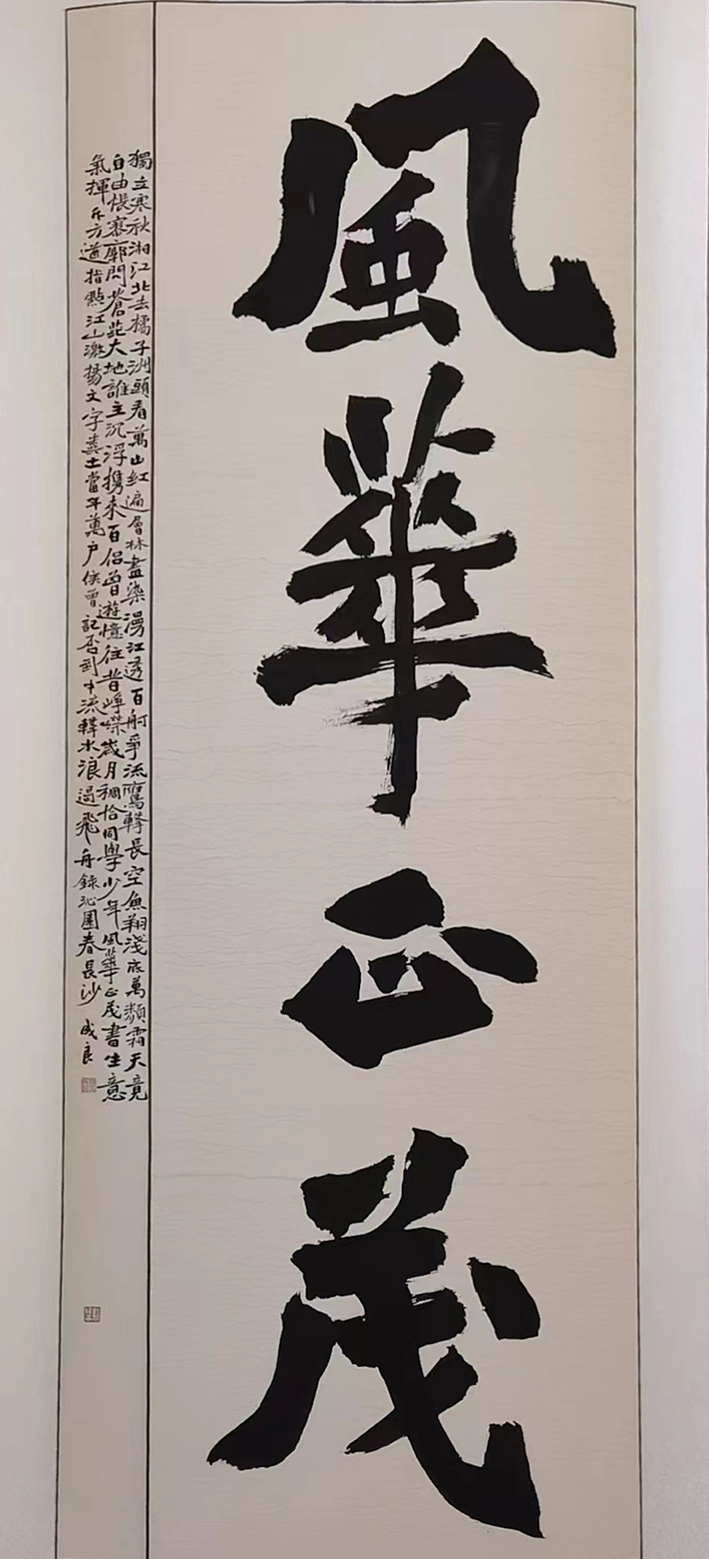 風華正茂
獨立寒秋湘江北去橘子洲頭看萬山紅遍層林盡染漫江透百舸爭流鷹擊長空魚翔淺底萬類霜天竟
自由悵寥廓問蒼茫大地誰主沉浮携來百侣曾遊憶往昔崢嶸歲月稠恰同學少年風華正茂書生意
氣揮斥方遒指點江山激揚文字糞土當年萬户侯曾記否到中流擊水浪遏飛舟錄沁園春長沙 成良